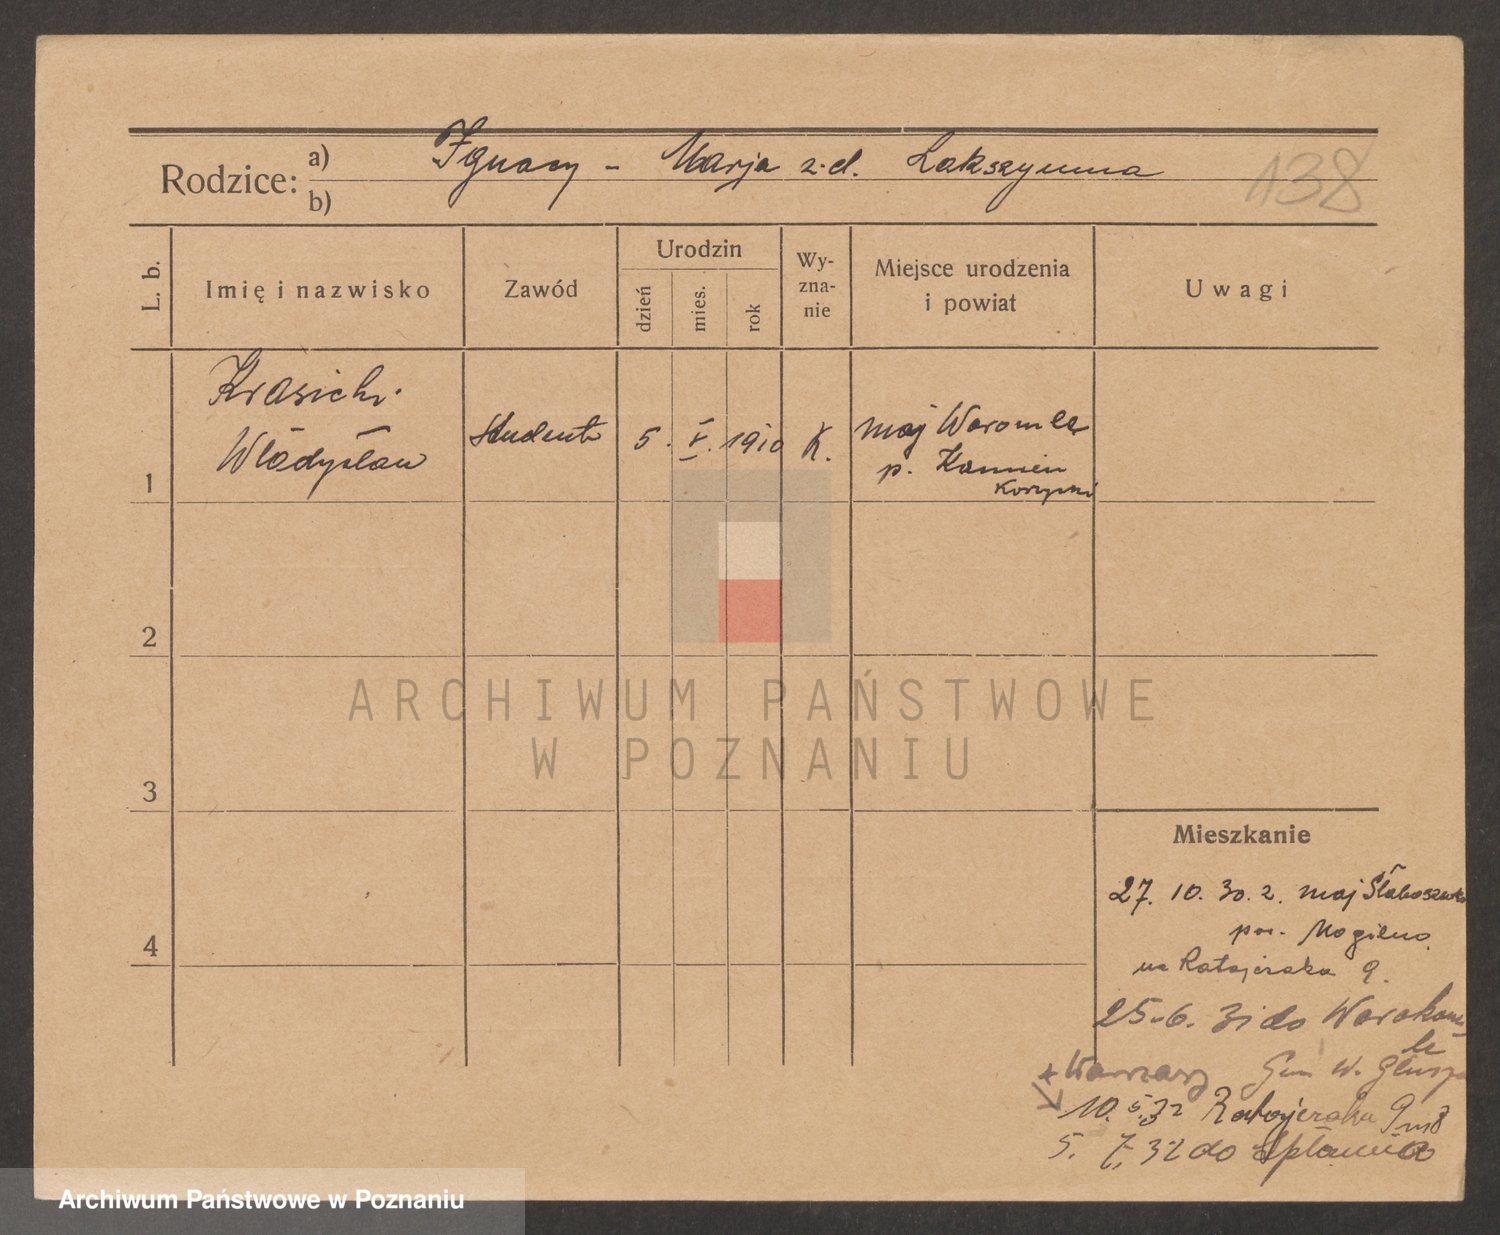 Rodzice: a) Ignacy - Marja z.d. Lakszynna
b)
138
L. b.
Imię i nazwisko
Zawód
Urodzin
dzień
mies.
rok
Wy-
zna-
nie
Miejsce urodzenia
i powiat
Uwagi
1
Krasicki
Władysław
student
5. V. 1910
K.
maj Woromle
p. Kamień
Koszyrski
2
3
4
ARCHIWUM PAŃSTWOWE
W POZNANIU
Mieszkanie
27. 10. 30. z. maj Słaboszewko
pow. Mogilno
na Ratajczaka 9.
25.6. 31 do
Gm W.
Warszawy
10. 5. 32 Ratajczaka 9 m 8
5. 7. 32 do Spławia
Archiwum Państwowe w Poznaniu